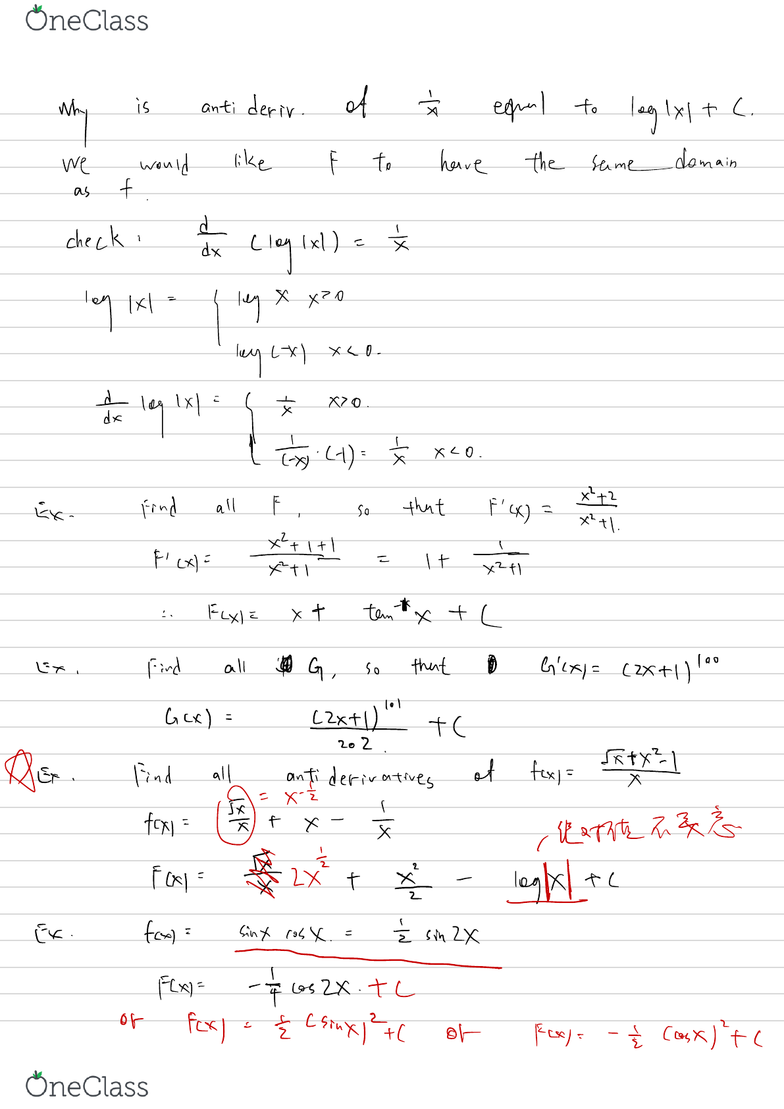 OneClass
Why is anti deriv. of 1/x equal to log|x| + C.
We would like F to have the same domain
as f.
check: d/dx (log|x|) = 1/x
log |x| = { log x x>0
log(-x) x<0.
d/dx log|x| = { 1/x x>0.
1/(-x) · (-1) = 1/x x<0.
Ex. Find all F, so that F'(x) = (x²+2)/(x²+1).
F'(x) = (x²+1+1)/(x²+1) = 1 + 1/(x²+1)
∴ F(x) = x + tan⁻¹x + C
Ex. Find all G, so that G'(x) = (2x+1)¹⁰⁰
G(x) = (2x+1)¹⁰¹/202 + C
Ex. Find all antiderivatives of f(x) = (√x+x²-1)/x
f(x) = √x/x + x - 1/x
= x^-1/2
绝对值不要忘
F(x) = 2x^1/2 + x²/2 - log|x| + C
Ex. f(x) = sinx cosx. = 1/2 sin2x
F(x) = -1/4 cos2x. + C
or F(x) = 1/2 (sinx)² + C or F(x) = -1/2 (cosx)² + C
OneClass